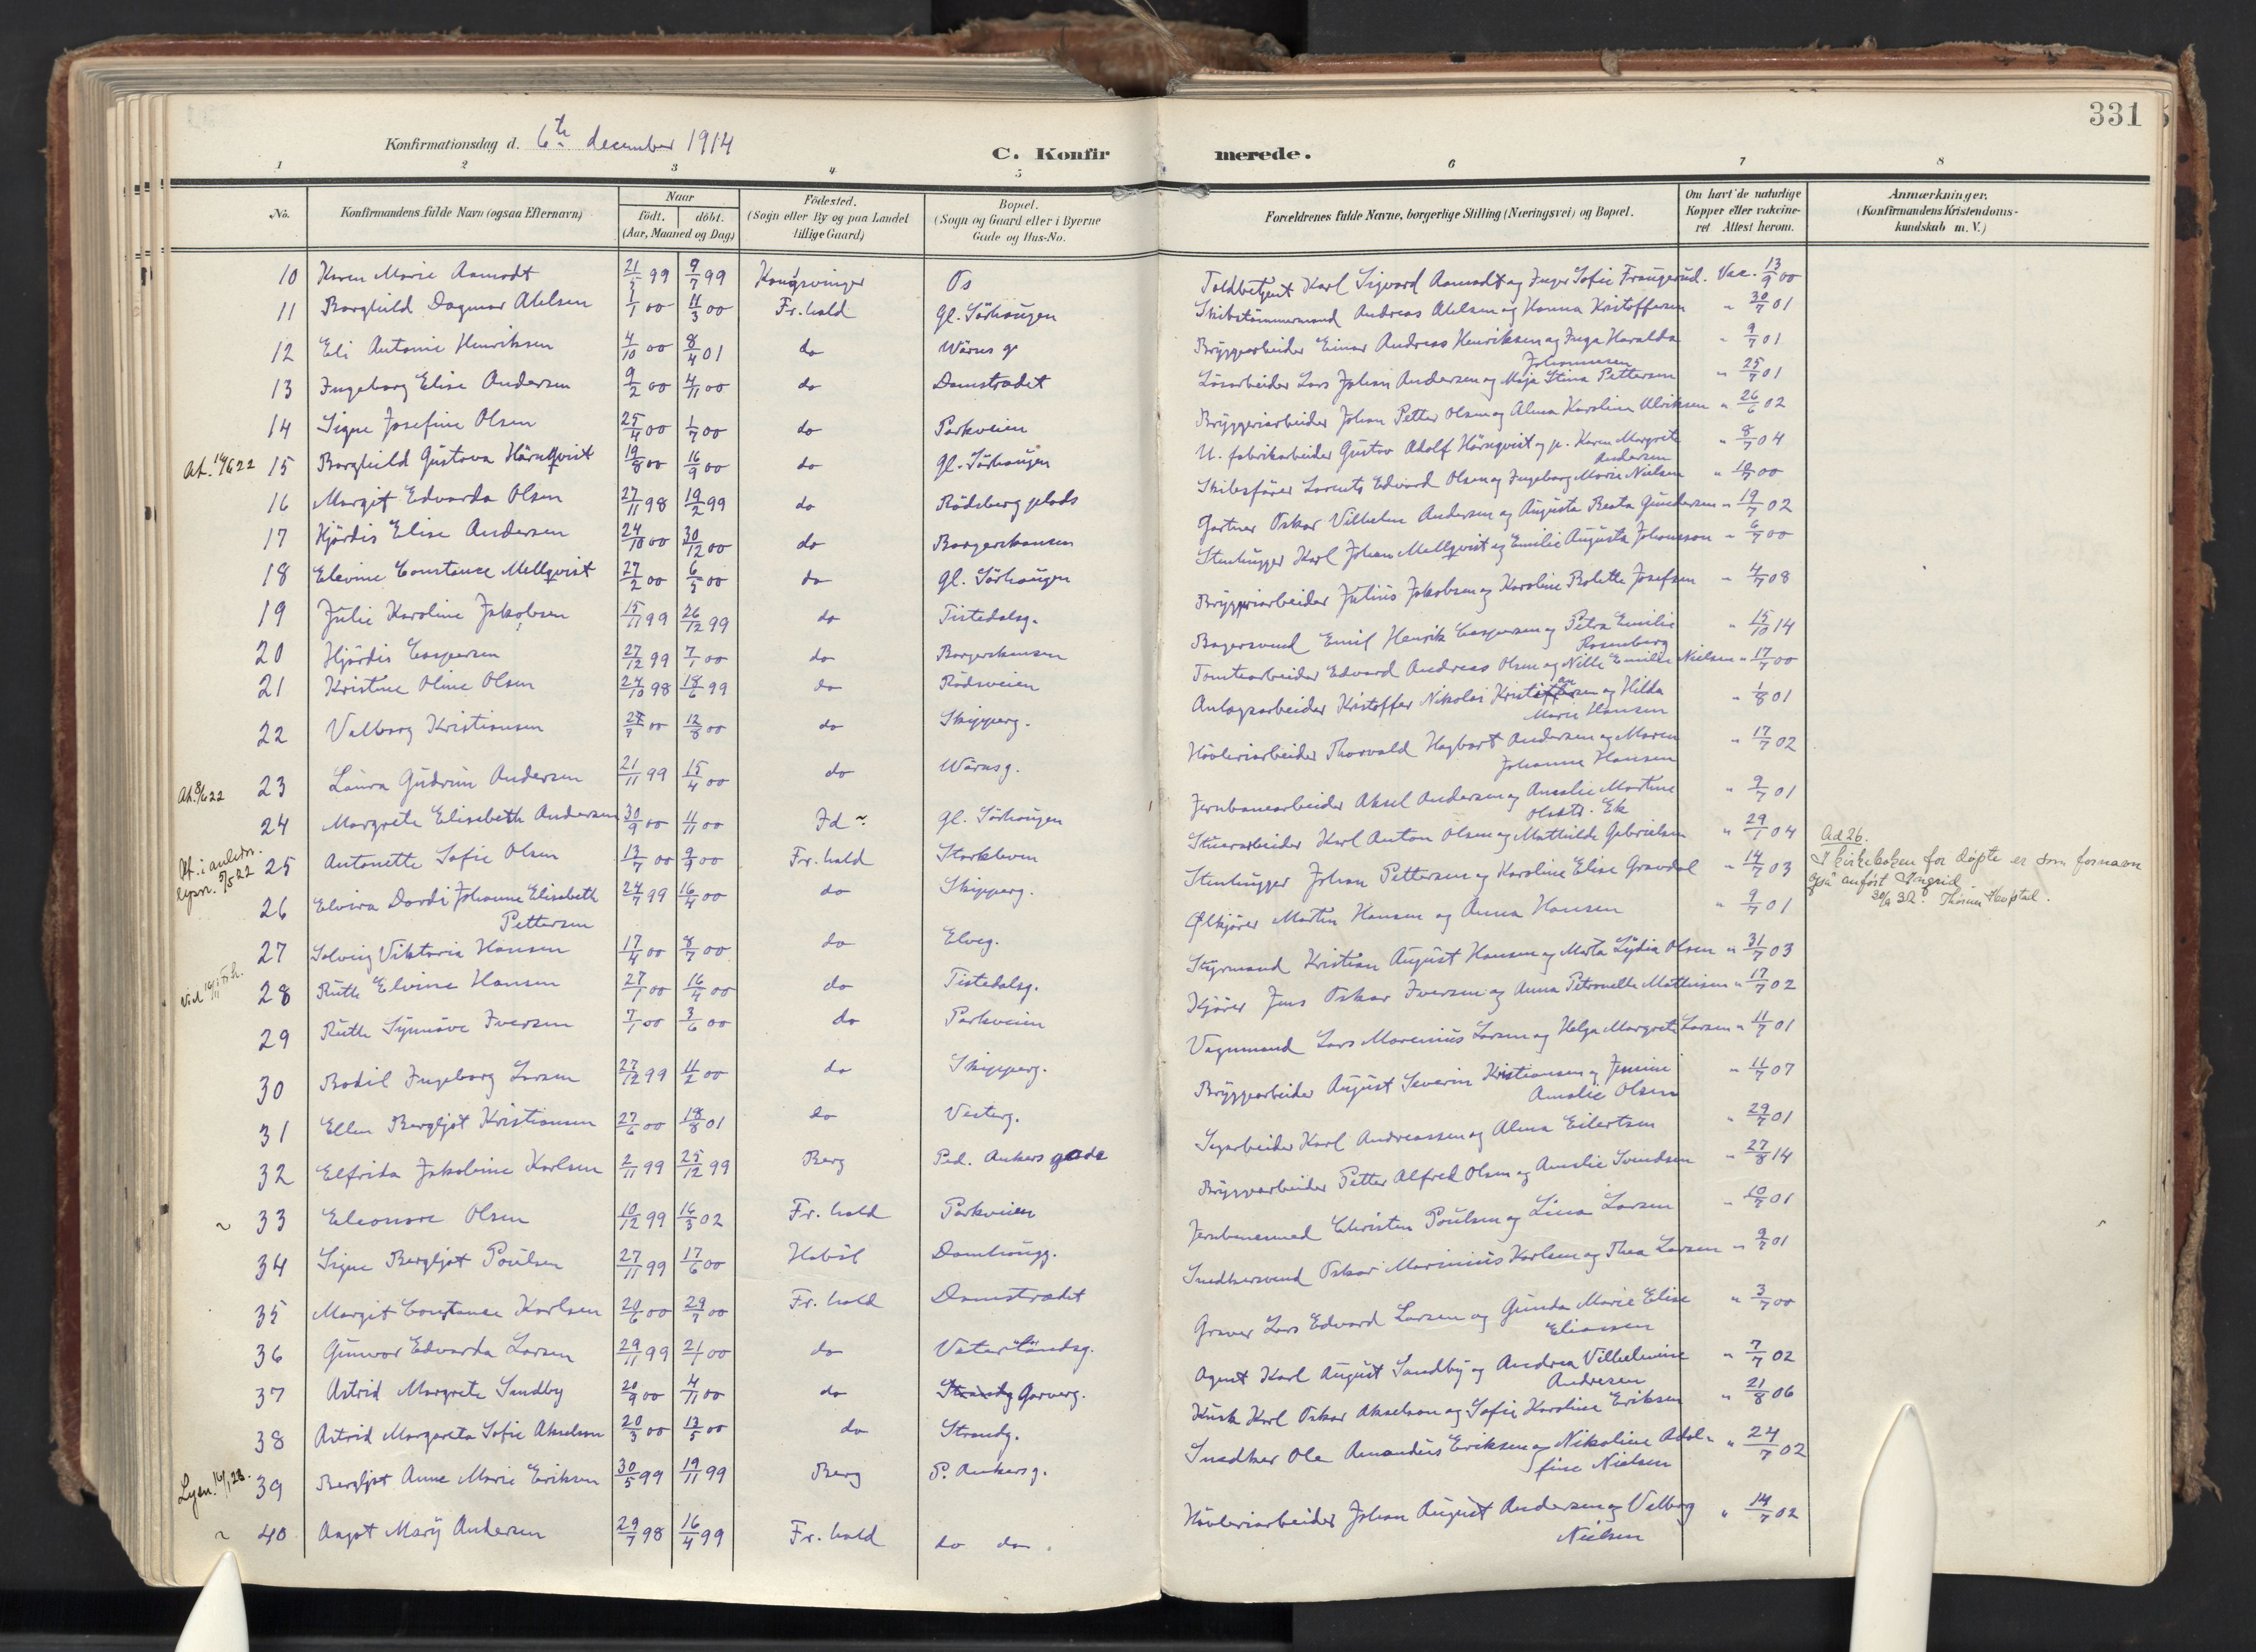 331
Konfirmationsdag d. 6te december 1914
C. Konfirmerede.
1 2 3 4 5 6 7 8
No. Konfirmandens fulde Navn (ogsaa Efternavn) Naar födt. döbt. (Aar, Maaned og Dag) Födested. (Sogn eller By og paa Landet tillige Gaard) Bopæl. (Sogn og Gaard eller i Byerne Gade og Hus-No. Forældrenes fulde Navne, borgerlige Stilling (Næringsvei) og Bopæl. Om havt de naturlige Kopper eller vakcineret Attest herom. Anmærkninger. (Konfirmandens Kristendomskundskab m. V.)
10 Karen Marie Aamodt 21/5 99 9/7 99 Kongsvinger Os Toldbetjent Karl Sigvard Aamodt og Inger Sofie Fraugerud. Vac. 13/9 00
11 Borghild Dagmar Ahlsen 1/1 00 11/3 00 Fr.hald Gl. Sörhaugen Skibstömmermand Andreas Ahlsen og Hanna Kristoffersen " 30/7 01
12 Eli Antonie Henriksen 4/10 00 8/4 01 do Wärns g Bryggearbeider Einar Andreas Henriksen og Inga Haralda Johannesen " 9/7 01
13 Ingeborg Elise Andersen 9/2 00 4/11 00 do Damstrædet Lösarbeider Lars Johan Andersen og Maja Stina Pettersen " 25/7 01
14 Signe Josefine Olsen 25/4 00 1/7 00 do Parkveien Bryggeriarbeider Johan Petter Olsen og Alma Karoline Ulriksen " 26/6 02
At. 14/6 22 15 Borghild Gustava Härnqvist 19/8 00 16/9 00 do Gl. Sörhaugen U. fabrikarbeider Gustav Adolf Härnqvist og h. Karen Margrete Andersen " 8/7 04
16 Margit Edvarda Olsen 27/11 98 19/2 99 do Rödsberg plads Skibsförer Lorents Edvard Olsen og Ingeborg Marie Nielsen " 10/7 00
17 Hjördis Elise Andersen 24/10 00 30/12 00 do Borgerskansen Gartner Oskar Vilhelm Andersen og Augusta Beata Gundersen " 19/7 02
18 Elevine Constance Mellqvist 27/2 00 6/5 00 do Gl. Sörhaugen Stenhugger Karl Johan Mellqvist og Emilie Augusta Johansson " 6/7 00
19 Julie Karoline Jakobsen 15/11 99 26/12 99 do Tistedalsg. Bryggeriarbeider Julius Jakobsen og Karoline Bolette Josefsen " 4/7 08
20 Hjördis Caspersen 27/12 99 7/1 00 do Borgerskansen Bagersvend Emil Henrik Caspersen og Petra Emilie Rosenberg " 15/10 14
21 Kristine Oline Olsen 24/10 98 18/6 99 do Rödsveien Tomtearbeider Edvard Andreas Olsen og Nille Emilie Nielsen " 17/7 00
22 Valborg Kristiansen 27/7 00 12/8 00 do Skipperg. Anlægsarbeider Kristoffer Nikolai Kristiansen og Hilda Marie Hansen " 1/8 01
At. 8/6 22 23 Laura Gudrun Andersen 21/11 99 15/4 00 do Wärnsg. Hövleriarbeider Thorvald Hagbart Andersen og Maren Johanne Hansen " 17/7 02
24 Margrete Elisebeth Andersen 30/9 00 11/11 00 Id Gl. Sörhaugen Jernbanearbeider Aksel Andersen og Amalie Martine Olsdtr. Ek " 9/7 01
At. i anledn. lysn. 5/5 22 25 Antonette Sofie Olsen 13/7 00 9/9 00 Fr.hald Storkleven Stuerarbeider Karl Anton Olsen og Mathilde Gabrielsen " 29/1 04
26 Elvira Dordi Johanne Elisabeth Pettersen 24/7 99 16/4 00 do Skipperg. Stenhugger Johan Pettersen og Karoline Elise Gravdal " 14/7 03
Ad 26. I kirkeboken for döpte er som fornavn også anført Ingrid
27 Solveig Viktoria Hansen 17/4 00 8/7 00 do Elveg. Ølkjörer Martin Hansen og Anna Hansen " 9/7 01
28 Ruth Elvine Hansen 27/1 00 16/4 00 do Tistedalsg. Styrmand Kristian August Hansen og Marta Lydia Olsen " 31/7 03
29 Ruth Synnöve Iversen 7/1 00 3/6 00 do Parkveien Kjörer Jens Oskar Iversen og Anna Petronelle Mathisen " 17/7 02
30 Bodil Ingeborg Larsen 27/12 99 11/2 00 do Skipperg. Vognmand Lars Marenius Larsen og Helga Margrete Larsen " 11/7 01
31 Ellen Bergljot Kristiansen 27/6 00 18/8 01 do Vesterg. Bryggearbeider August Severin Kristiansen og Jennie Amalie Olsen " 11/7 07
32 Elfrida Jakobine Karlsen 2/11 99 25/12 99 Berg Ped. Ankers gade Sagarbeider Karl Andreassen og Alma Eilertsen " 29/7 01
~ 33 Eleonore Olsen 10/12 99 16/3 02 Fr.hald Parkveien Bryggearbeider Petter Alfred Olsen og Amalie Svendsen " 27/8 14
34 Signe Bergljot Poulsen 27/11 99 17/6 00 Haböl Damhaugg. Jernbanemand Christen Poulsen og Lina Larsen " 10/7 01
35 Margit Constance Karlsen 20/6 00 29/7 00 Fr.hald Damstrædet Snedkersvend Oskar Marinius Karlsen og Thea Larsen " 9/7 01
36 Gunvor Edvarda Larsen 29/11 99 21/1 00 do Vaterlandsg. Graver Lars Edvard Larsen og Gunda Marie Elise Eliassen " 3/7 00
37 Astrid Margrete Sandby 20/9 00 4/11 00 do Garverg. Agent Karl August Sandby og Andrea Vilhelmine Andresen " 7/7 02
38 Astrid Margareta Sofie Akselson 20/3 00 13/5 00 do Strandg. Kusk Karl Oskar Akselson og Sofie Karoline Eriksen " 21/8 06
Lysn. 14/1 28. 39 Bergljot Anne Marie Eriksen 30/5 99 19/11 99 Berg P. Ankersg. Snedker Ole Amandus Eriksen og Nikoline Adolfine Nielsen " 24/7 02
~ 40 Aagot Mary Andersen 29/7 98 16/4 99 Fr.hald do do Hövleriarbeider Johan August Andersen og Valborg Nielsen " 14/7 02